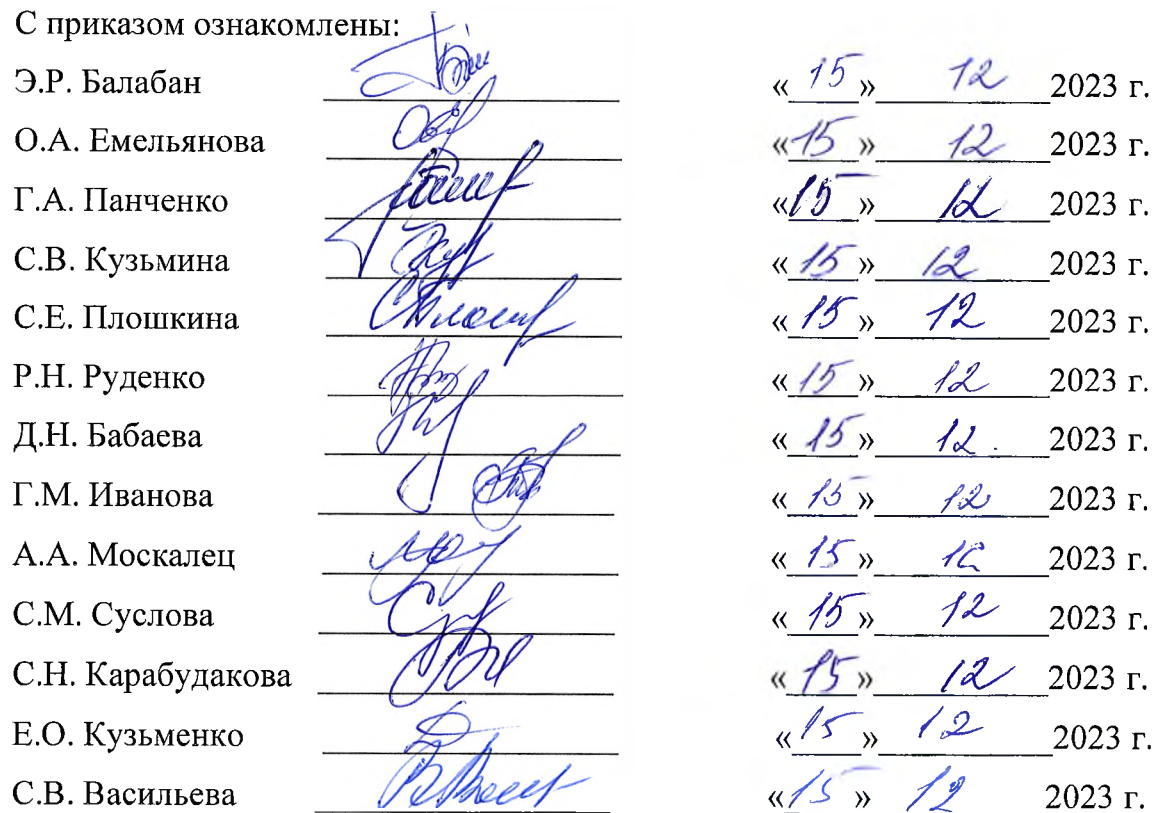 С приказом ознакомлены:
Э.Р. Балабан « 15 » 12 2023 г.
О.А. Емельянова « 15 » 12 2023 г.
Г.А. Панченко « 15 » 12 2023 г.
С.В. Кузьмина « 15 » 12 2023 г.
С.Е. Плошкина « 15 » 12 2023 г.
Р.Н. Руденко « 15 » 12 2023 г.
Д.Н. Бабаева « 15 » 12. 2023 г.
Г.М. Иванова « 15 » 12 2023 г.
А.А. Москалец « 15 » 12 2023 г.
С.М. Суслова « 15 » 12 2023 г.
С.Н. Карабудакова « 15 » 12 2023 г.
Е.О. Кузьменко « 15 » 12 2023 г.
С.В. Васильева « 15 » 12 2023 г.